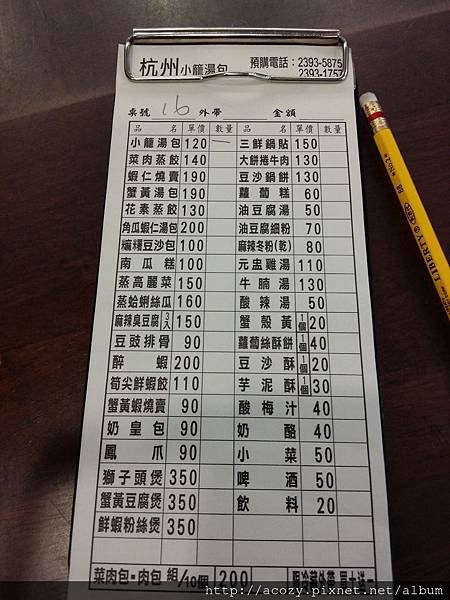 杭州小籠湯包 預購電話：2393-5875
2393-1757
桌號 16 外帶 金額
品名 單價 數量 品名 單價 數量
小籠湯包 120 一 三鮮鍋貼 150
菜肉蒸餃 140 大餅捲牛肉 130
蝦仁燒賣 190 豆沙鍋餅 130
蟹黃湯包 190 蘿蔔糕 60
花素蒸餃 130 油豆腐湯 50
角瓜蝦仁湯包 200 油豆腐細粉 70
豆沙包 100 麻辣冬粉(乾) 80
南瓜糕 100 元盅雞湯 110
蒸高麗菜 150 牛腩湯 130
蒸蛤蜊絲瓜 160 酸辣湯 50
麻辣臭豆腐 3入 150 蟹殼黃 1個 20
豆豉排骨 90 蘿蔔絲酥餅 1個 40
醉蝦 200 豆沙酥 1個 20
筍尖鮮蝦餃 110 芋泥酥 1個 30
蟹黃蝦燒賣 90 酸梅汁 40
奶皇包 90 奶酪 40
鳳爪 90 小菜 50
獅子頭煲 350 啤酒 50
蟹黃豆腐煲 350 飲料 20
鮮蝦粉絲煲 350
菜肉包·肉包 組/10個 200 限冷藏外帶 買十送一
LIBERTY
http://acozy.pixnet.net/album